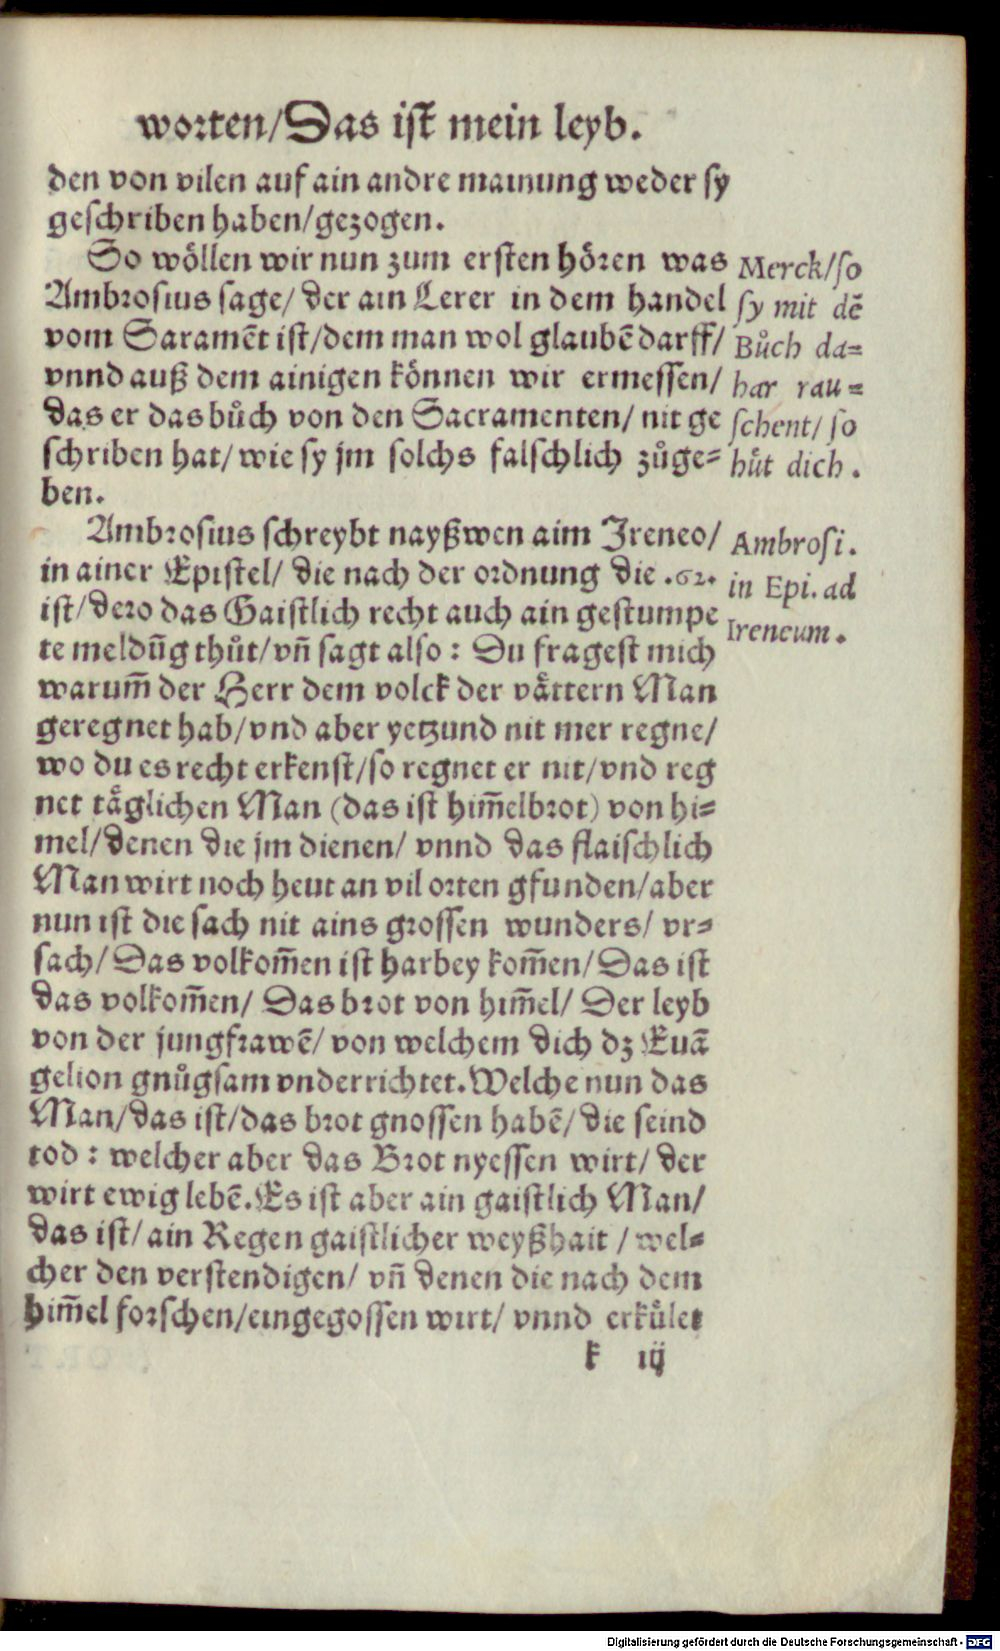 worten/Das ist mein leyb.
den von vilen auf ain andre mainung weder sy
geschriben haben/gezogen.
So wöllen wir nun zum ersten hören was
Ambrosius sage/ der ain Lerer in dem handel
vom Saramẽt ist/dem man wol glaubẽ darff/
vnnd auß dem ainigen können wir ermessen/
das er das bůch von den Sacramenten/ nit ge
schriben hat/ wie sy jm solchs falschlich zůge=
ben.
Merck/so
sy mit dẽ
Bůch da=
har rau=
schent/ so
hůt dich.
Ambrosius schreybt nayßwen aim Jreneo/
in ainer Epistel/ die nach der ordnung die .62.
ist/dero das Gaistlich recht auch ain gestumpe
te meldũg thůt/vñ sagt also: Du fragest mich
warum̃ der Herr dem volck der vättern Man
geregnet hab/vnd aber yetzund nit mer regne/
wo du es recht erkenst/so regnet er nit/vnd reg
net täglichen Man (das ist him̃elbrot) von hi=
mel/denen die jm dienen/ vnnd das flaischlich
Man wirt noch heut an vil orten gfunden/aber
nun ist die sach nit ains grossen wunders/ vr=
sach/Das volkom̃en ist harbey kom̃en/Das ist
das volkom̃en/ Das brot von him̃el/ Der leyb
von der jungfrawẽ/ von welchem dich dz Euã
gelion gnůgsam vnderrichtet.Welche nun das
Man/das ist/das brot gnossen habẽ/die seind
tod: welcher aber das Brot nyessen wirt/ der
wirt ewig lebẽ.Es ist aber ain gaistlich Man/
das ist/ain Regen gaistlicher weyßhait/wel=
cher den verstendigen/ vñ denen die nach dem
him̃el forschen/eingegossen wirt/ vnnd erkület
Ambrosi.
in Epi. ad
Ireneum.
k iij
Digitalisierung gefördert durch die Deutsche Forschungsgemeinschaft - DFG